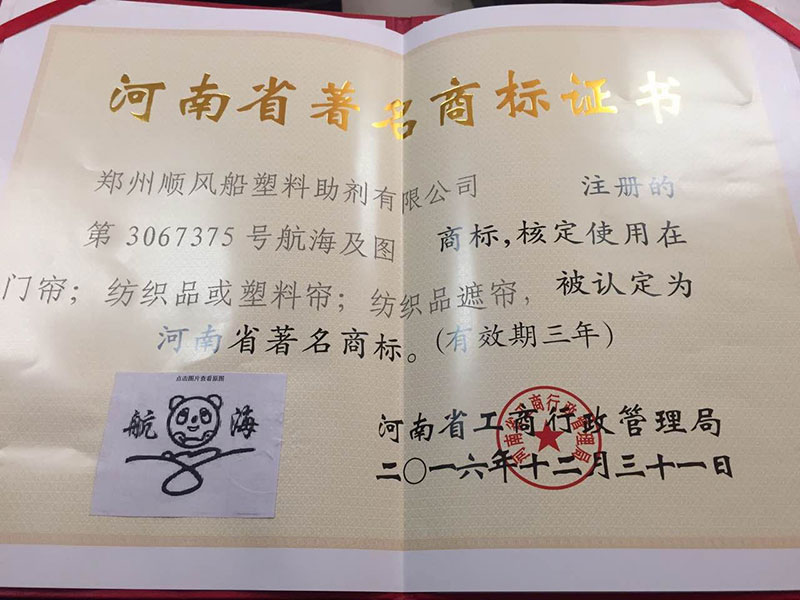 河南省著名商标证书
郑州顺风船塑料助剂有限公司 注册的
第 3067375 号航海及图 商标，核定使用在
门帘；纺织品或塑料帘；纺织品遮帘， 被认定为
河南省著名商标。(有效期三年)
点击图片查看原图
航 海
河南省工商行政管理局
二〇一六年十二月三十一日
河南省工商行政管理局